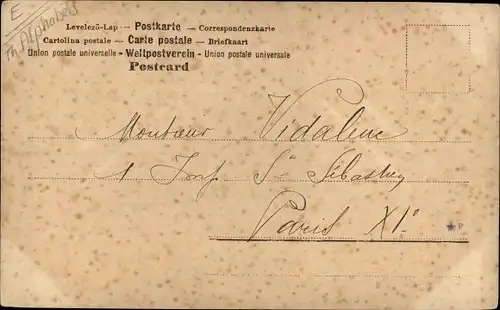 E
Th. Alphabets
Levelező-Lap — Postkarte — Correspondenzkarte
Cartolina postale — Carte postale — Briefkaart
Union postale universelle - Weltpostverein - Union postale universale
Postcard
Monsieur Vidalenc
1 Imp St Sébastien
Paris XIe